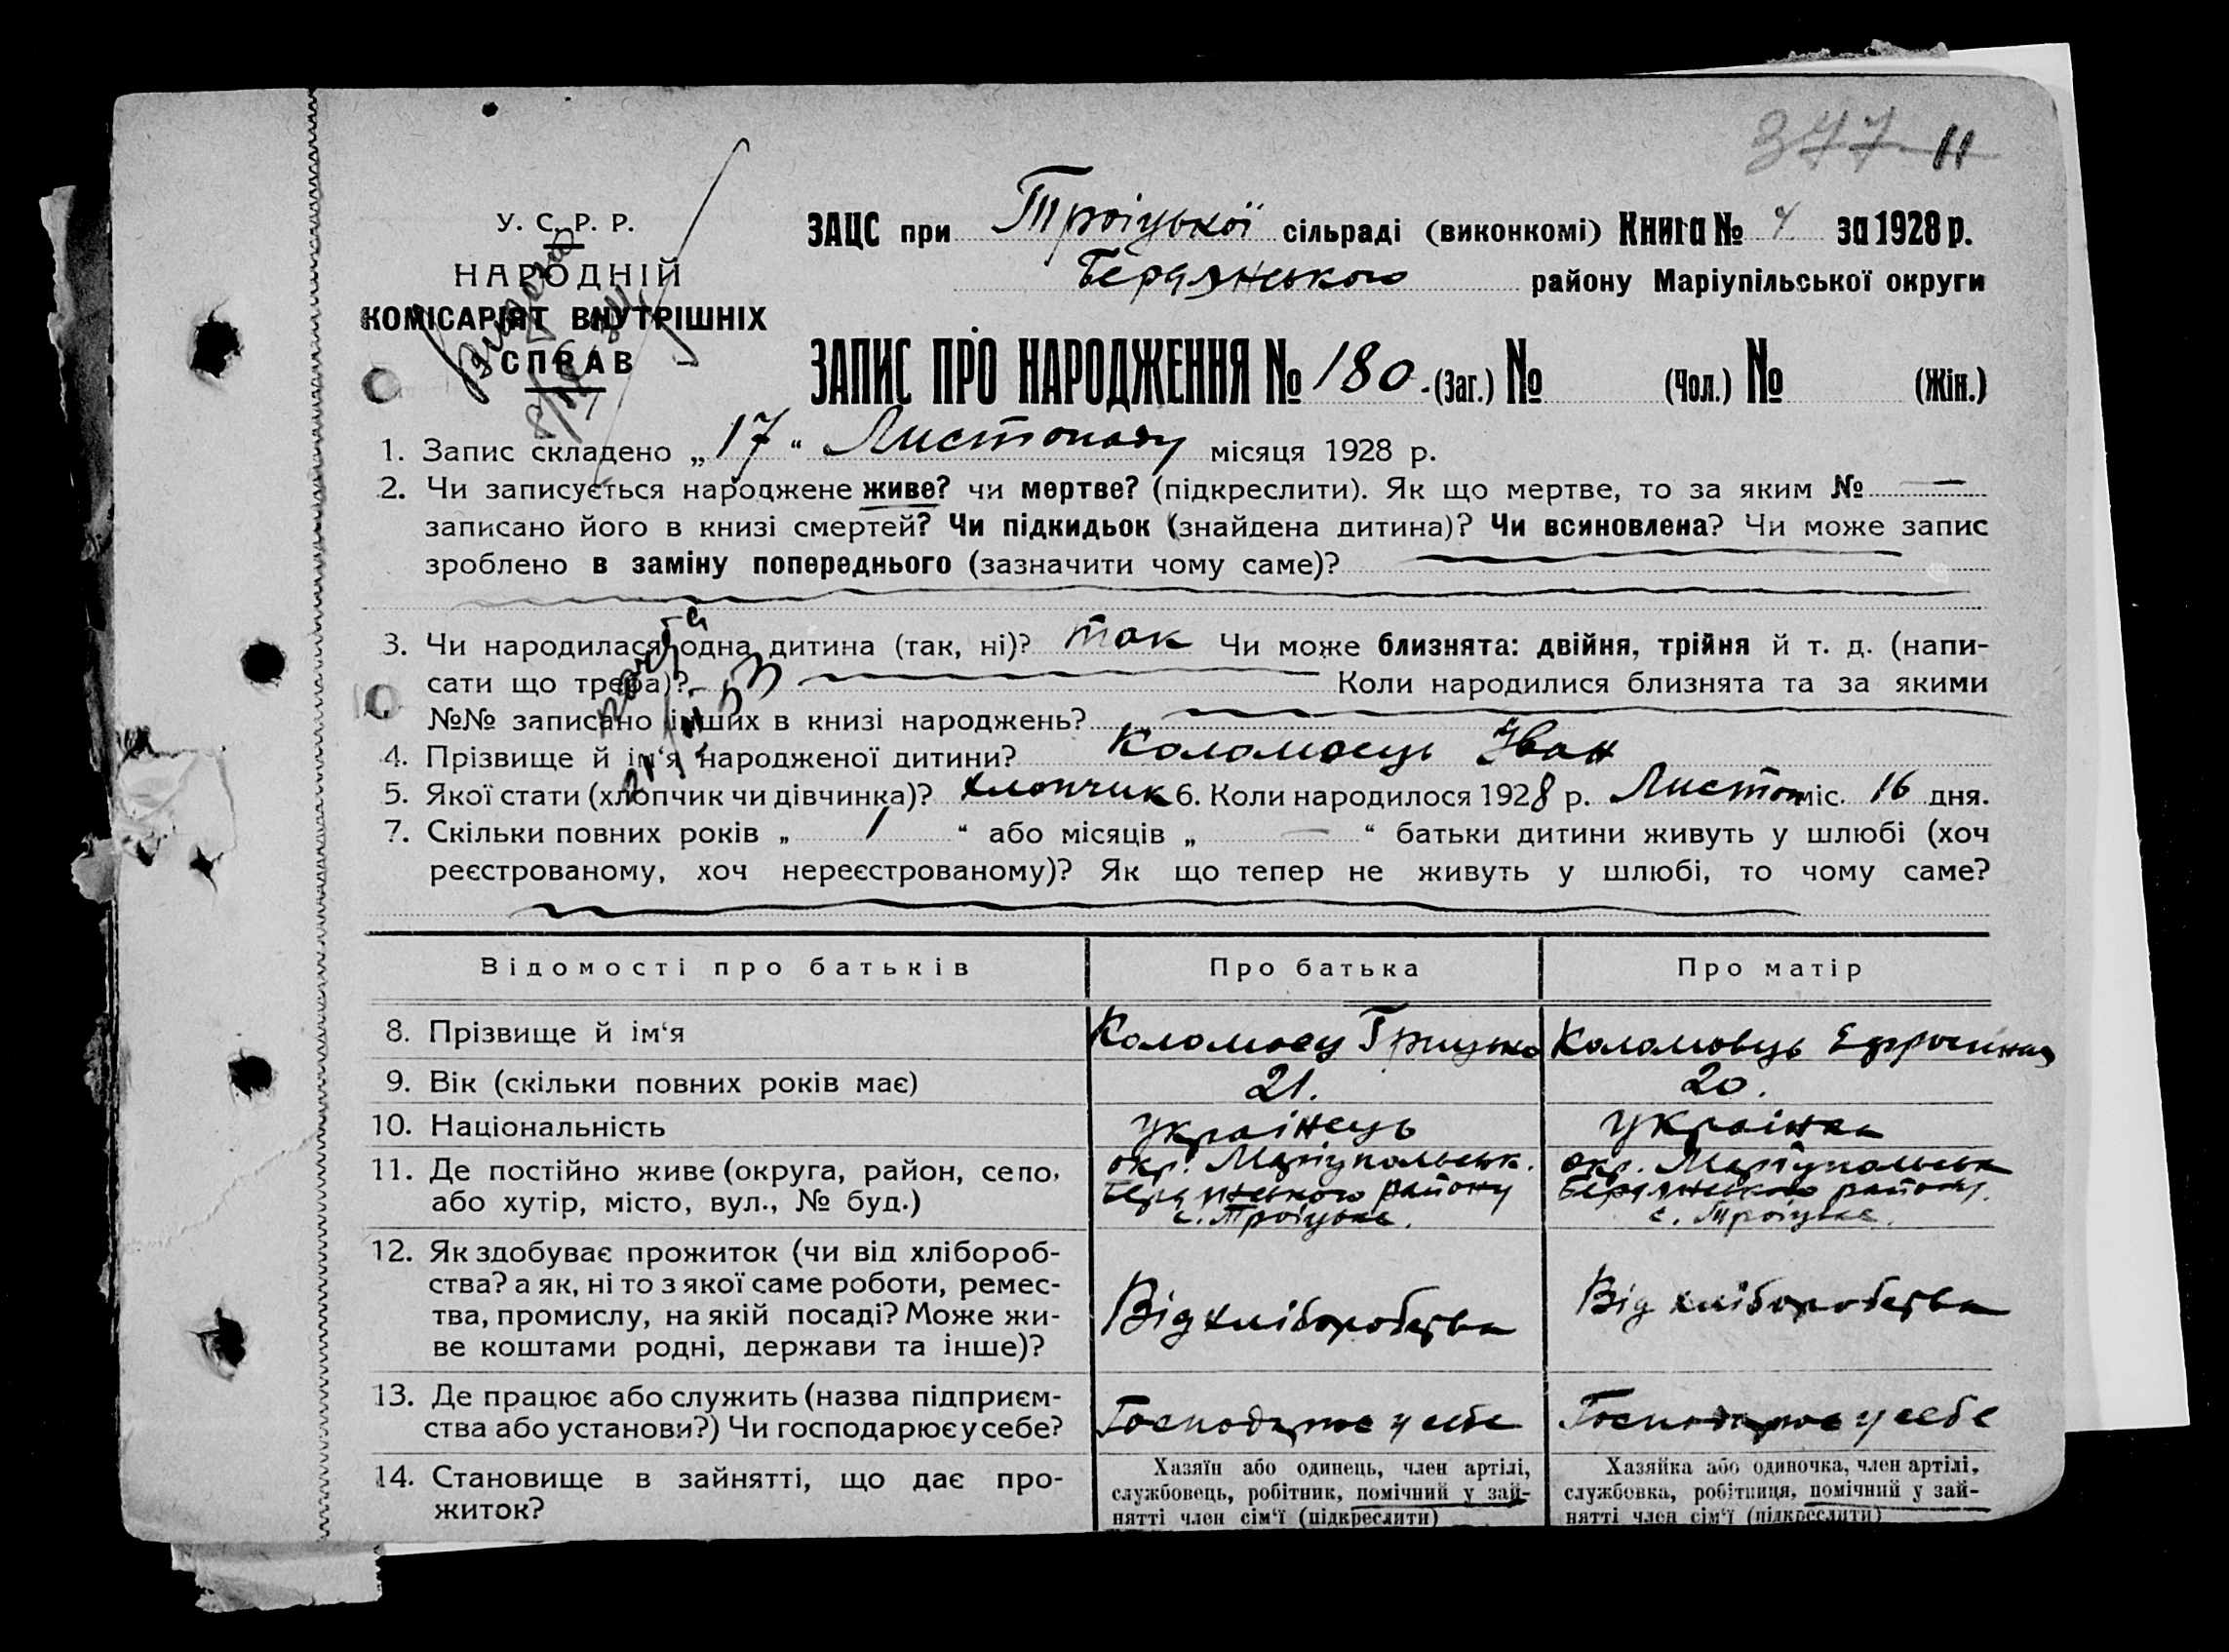 377 11
У. С. Р. Р.
НАРОДНІЙ
КОМІСАРІЯТ ВНУТРІШНІХ
СПРАВ
ЗАЦС при Троіцької сільраді (виконкомі) Книга № 4 за 1928 р.
Бердянського району Маріупільської округи
ЗАПИС ПРО НАРОДЖЕННЯ № 180. (Заг.) № (Чол.) № (Жін.)
1. Запис складено „17“ Листопаду місяця 1928 р.
2. Чи записується народжене живе? чи мертве? (підкреслити). Як що мертве, то за яким № —
записано його в книзі смертей? Чи підкидьок (знайдена дитина)? Чи всиновлена? Чи може запис
зроблено в заміну попереднього (зазначити чому саме)?
3. Чи народилася одна дитина (так, ні)? так Чи може близнята: двійня, трійня й т. д. (напи-
сати що треба)? Коли народилися близнята та за якими
№№ записано інших в книзі народжень?
4. Прізвище й ім‘я народженої дитини? Коломоець Іван
5. Якої стати (хлопчик чи дівчинка)? хлопчик 6. Коли народилося 1928 р. Листоп міс. 16 дня.
7. Скільки повних років „ 1 “ або місяців „ — “ батьки дитини живуть у шлюбі (хоч
реєстрованому, хоч нереєстрованому)? Як що тепер не живуть у шлюбі, то чому саме?
Відомості про батьків Про батька Про матір
8. Прізвище й ім‘я Коломоец Грицько Коломоець Ефросинія
9. Вік (скільки повних років має) 21. 20.
10. Національність украінець украінка
11. Де постійно живе (округа, район, село, окр. Маріупольськ. окр. Маріупольськ
або хутір, місто, вул., № буд.) Бердянського району Бердянського району.
с. Троіцьке. с. Троіцьке.
12. Як здобуває прожиток (чи від хлібороб-
ства? а як, ні то з якої саме роботи, ремес-
тва, промислу, на якій посаді? Може жи- Від хліборобства Від хліборобства
ве коштами родні, держави та інше)?
13. Де працює або служить (назва підприєм-
ства або установи?) Чи господарює у себе? Господарює у себе Господарює у себе
14. Становище в зайнятті, що дає про-
житок?
Хазяїн або одинець, член артілі,
службовець, робітник, помічний у зай-
нятті член сім‘ї (підкреслити)
Хазяйка або одиночка, член артілі,
службовка, робітниця, помічний у зай-
нятті член сім‘ї (підкреслити)